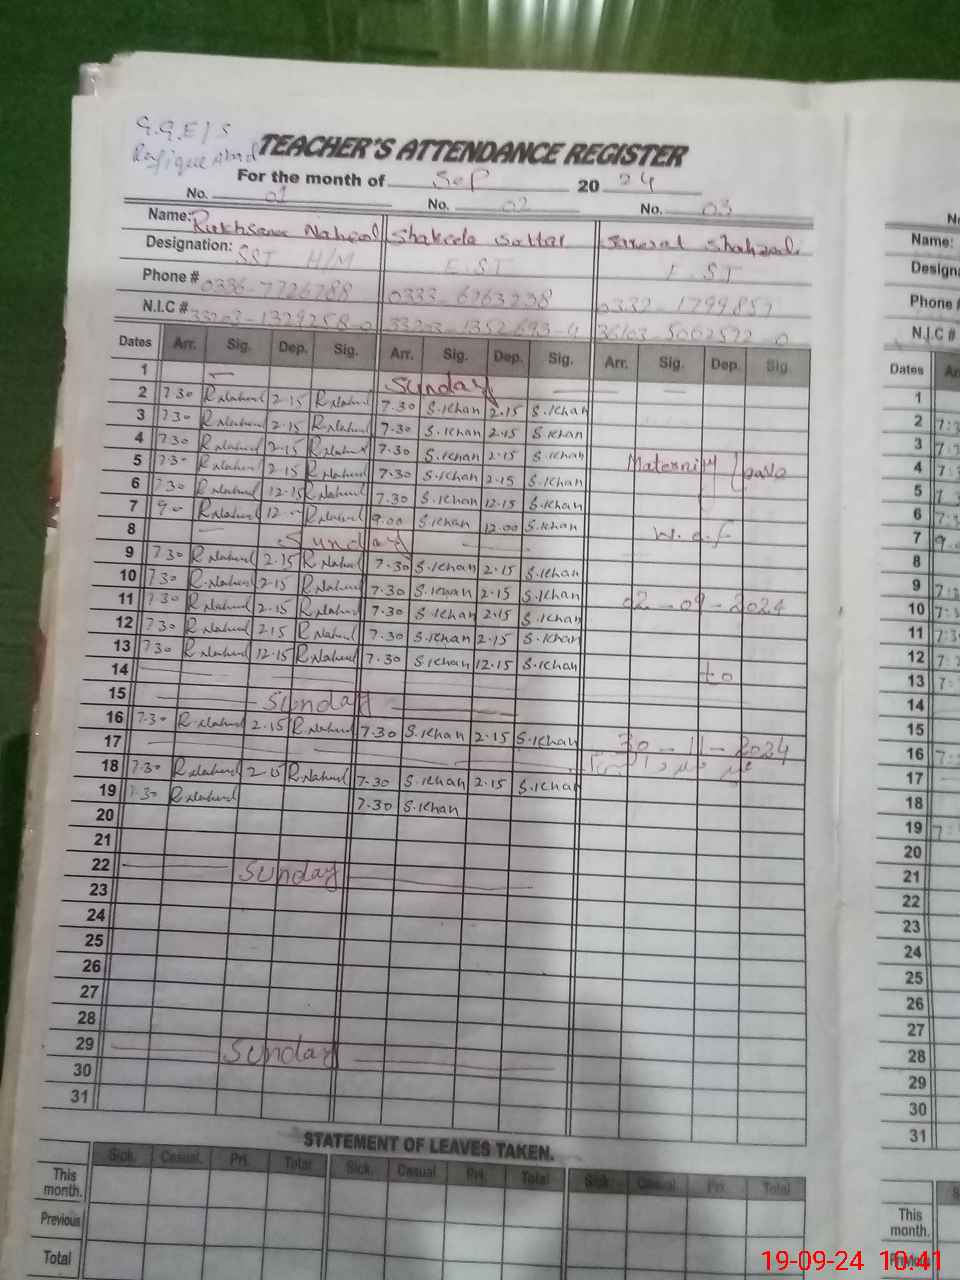 G.G.E/S
TEACHER'S ATTENDANCE REGISTER
For the month of Sep 2024
No. 01 No. 02 No. 03
Name: Rukhsana Naheed Shakeela Sattar Shahzadi
Designation: SST H/M E.ST E.ST
Phone # 0336-7726788 0333-6763238 0332-1799857
N.I.C #
Dates Arr. Sig. Dep. Sig. Arr. Sig. Dep. Sig. Arr. Sig. Dep. Sig.
1 Sunday
2 7.30 R.Naheed 2.15 R.Naheed 7.30 S.Khan 2.15 S.Khan
3 7.30 R.Naheed 2.15 R.Naheed 7.30 S.Khan 2.15 S.Khan
4 7.30 R.Naheed 2.15 R.Naheed 7.30 S.Khan 2.15 S.Khan
5 7.30 R.Naheed 2.15 R.Naheed 7.30 S.Khan 2.15 S.Khan Maternity leave
6 7.30 R.Naheed 12.15 R.Naheed 7.30 S.Khan 12.15 S.Khan
7 9.00 R.Naheed 12.00 R.Naheed 9.00 S.Khan 12.00 S.Khan
8 Sunday w.e.f
9 7.30 R.Naheed 2.15 R.Naheed 7.30 S.Khan 2.15 S.Khan
10 7.30 R.Naheed 2.15 R.Naheed 7.30 S.Khan 2.15 S.Khan
11 7.30 R.Naheed 2.15 R.Naheed 7.30 S.Khan 2.15 S.Khan 02-09-2024
12 7.30 R.Naheed 2.15 R.Naheed 7.30 S.Khan 2.15 S.Khan
13 7.30 R.Naheed 12.15 R.Naheed 7.30 S.Khan 12.15 S.Khan
14 to
15 Sunday
16 7.30 R.Naheed 2.15 R.Naheed 7.30 S.Khan 2.15 S.Khan
17 30-11-2024
18 7.30 R.Naheed 2.15 R.Naheed 7.30 S.Khan 2.15 S.Khan
19 7.30 R.Naheed 7.30 S.Khan
20
21
22 Sunday
23
24
25
26
27
28
29 Sunday
30
31
STATEMENT OF LEAVES TAKEN.
Sick. Casual. Pri. Total Sick. Casual Pri. Total Sick. Casual. Pri. Total
This month.
Previous
Total
Name:
Phone #
N.I.C #
Dates
1
2
3
4
5
6
7
8
9
10
11
12
13
14
15
16
17
18
19
20
21
22
23
24
25
26
27
28
29
30
31
This month.
19-09-24 10:41